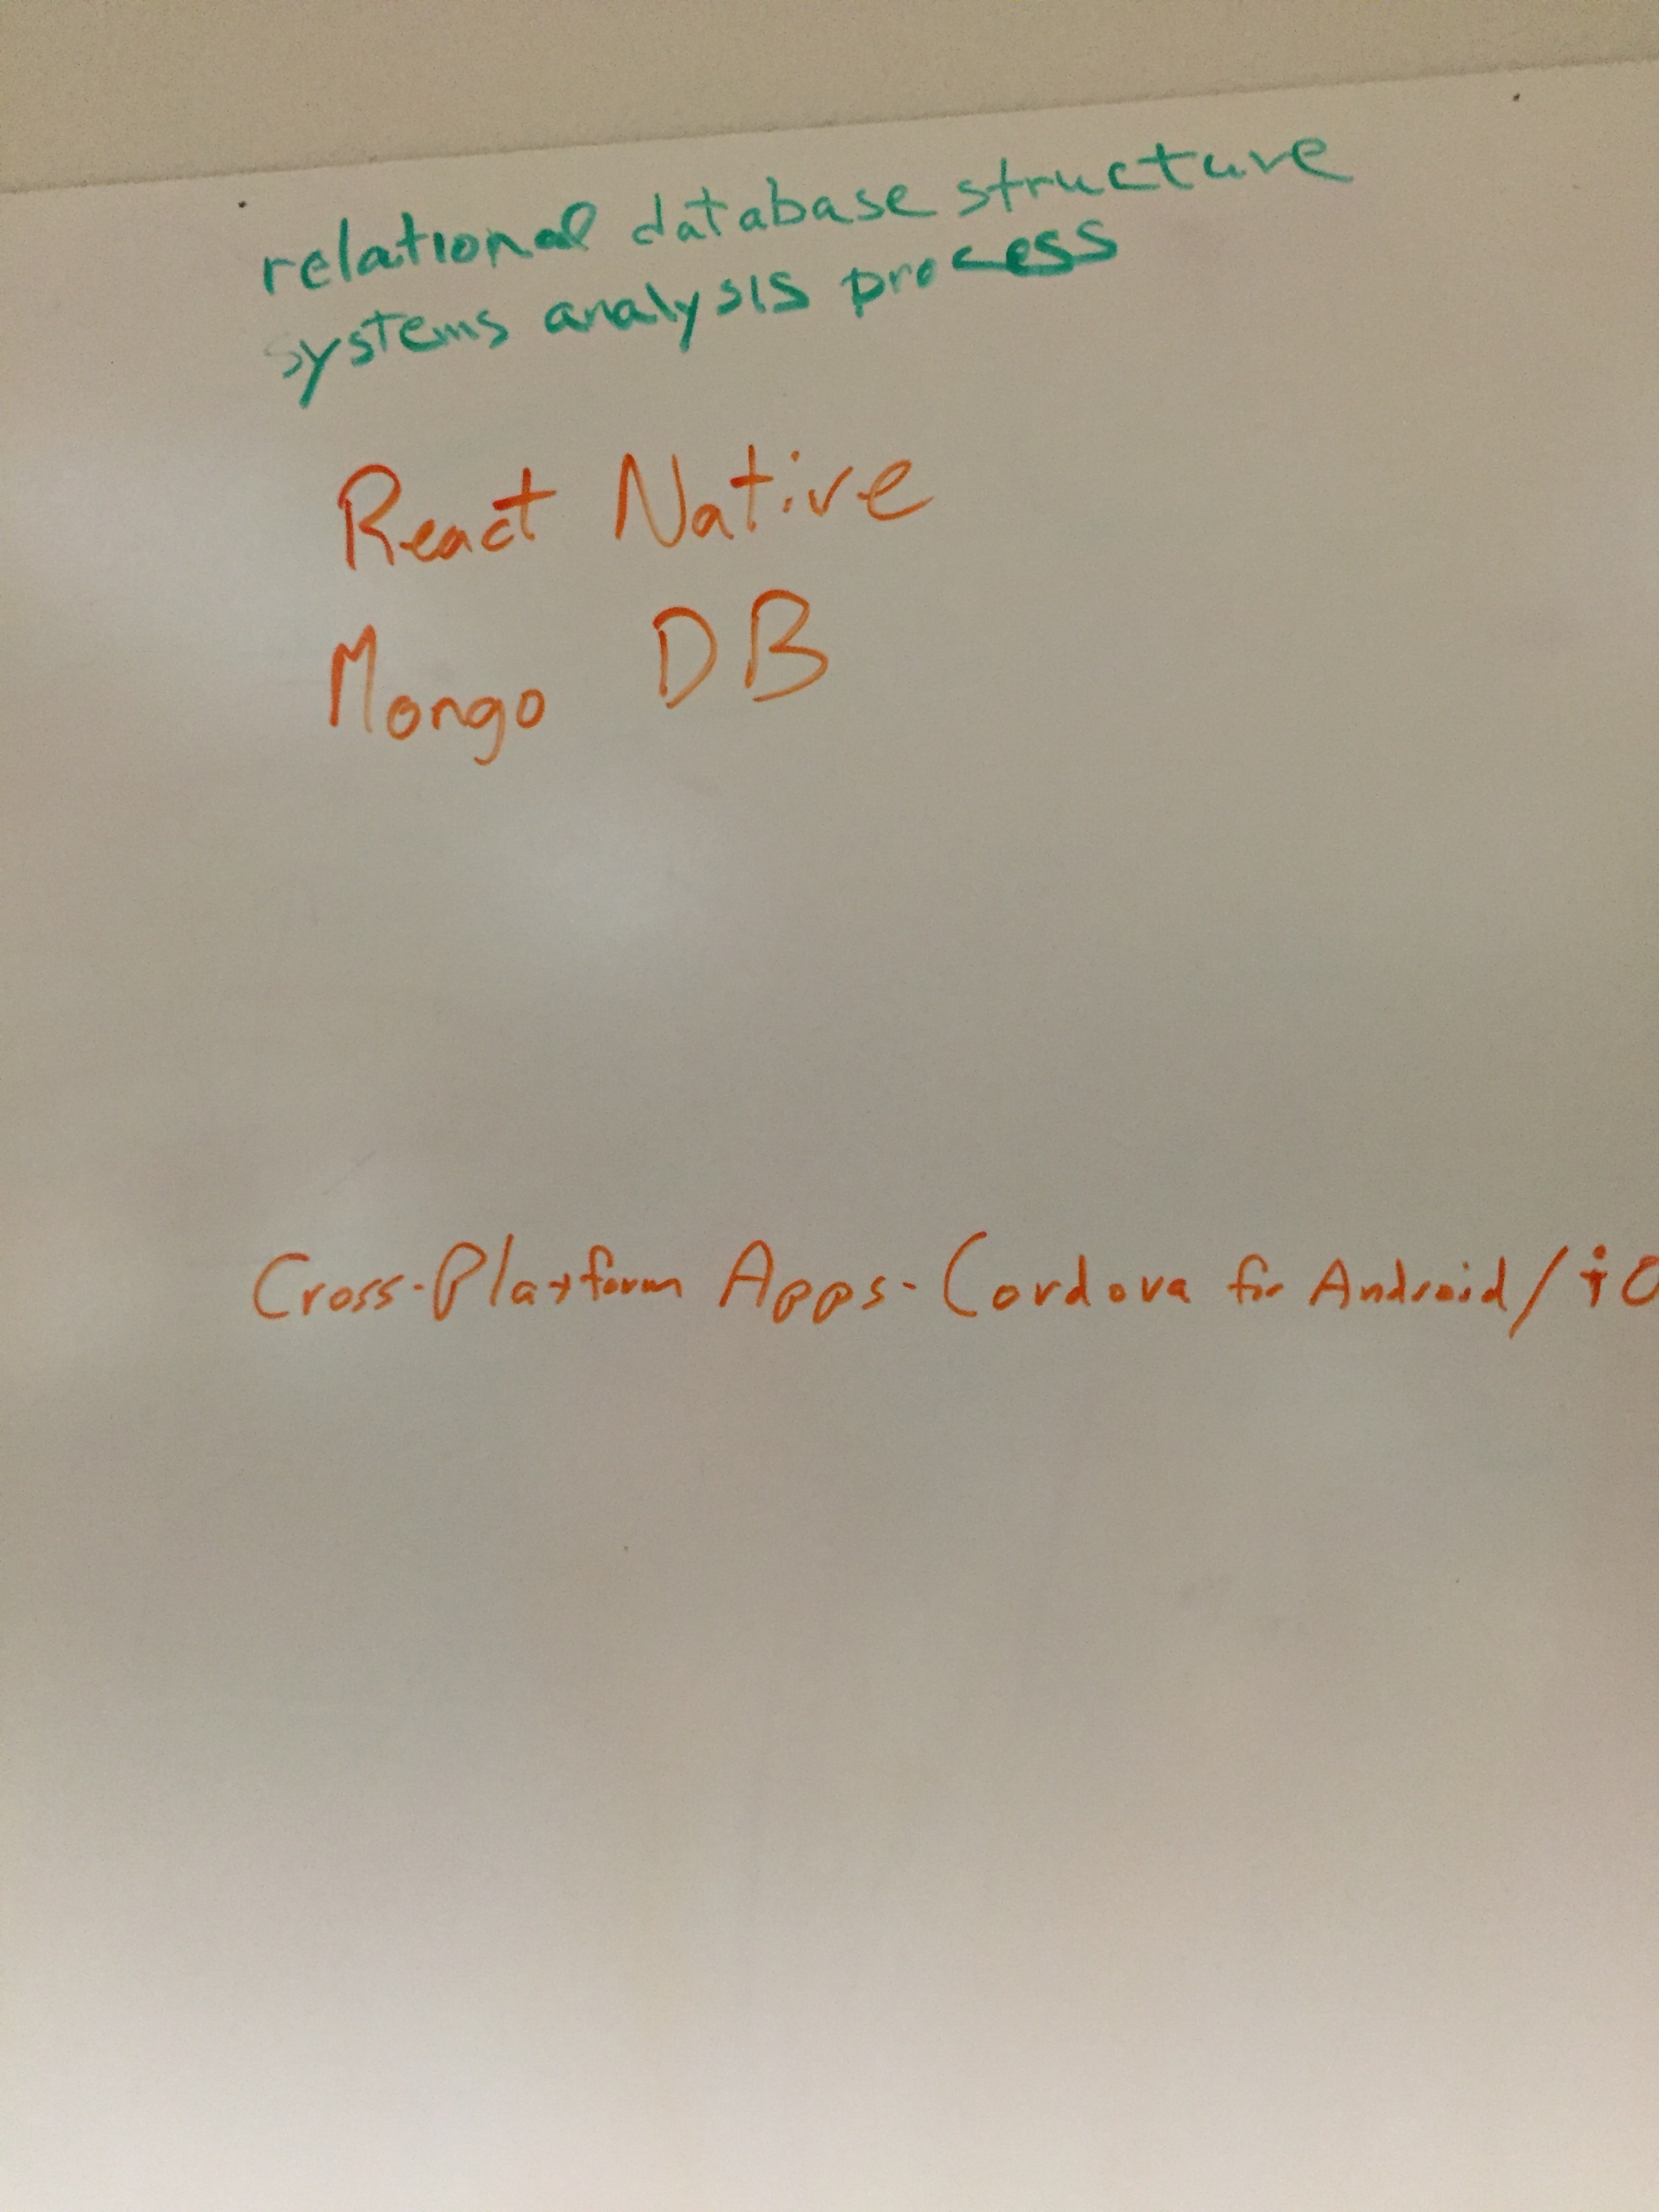 relational database structure
systems analysis process
React Native
Mongo DB
Cross-Platform Apps - Cordova for Android/iO